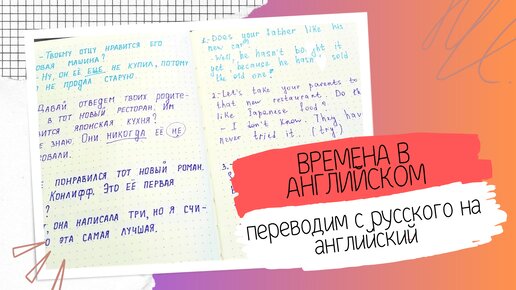 - ТВОЕМУ ОТЦУ НРАВИТСЯ ЕГО
ОВАЯ МАШИНА?
- НУ, ОН ЕЁ ЕЩЕ НЕ КУПИЛ, ПОТОМУ
НЕ ПРОДАЛ СТАРУЮ.
ДАВАЙ ОТВЕДЕМ ТВОИХ РОДИТЕ-
В ТОТ НОВЫЙ РЕСТОРАН. ИМ
ВИТСЯ ЯПОНСКАЯ КУХНЯ?
Е ЗНАЮ. ОНИ НИКОГДА ЕЁ НЕ
ОВАЛИ.
ПОНРАВИЛСЯ ТОТ НОВЫЙ РОМАН.
КОНЛИФФ. ЭТО ЕЁ ПЕРВАЯ
?
ОНА НАПИСАЛА ТРИ, НО Я СЧИ-
О ЭТА САМАЯ ЛУЧШАЯ.
1.-Does your father like his
new car?
- Well, he hasn't bought it
yet, because he hasn't sold
the old one.
2-Let's take your parents to
that new restaurant. Do th
like Japanese food?
- I don't know. They hav
never tried it. (try)
3.-
ВРЕМЕНА В
АНГЛИЙСКОМ
переводим с русского на
английский